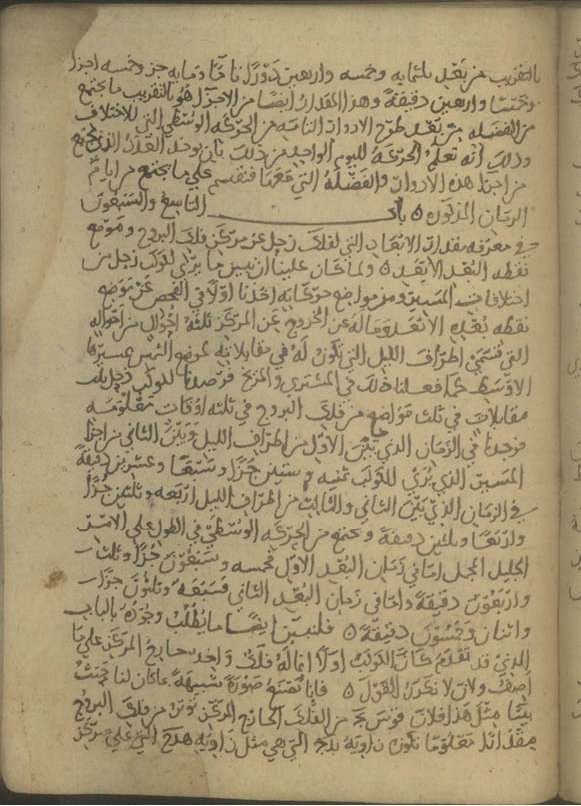 بالتقريب من بعد ثلثمايه وخمسه واربعين دورا تاما ومايه جز وخمسه اجزا
وخمسا واربعين دقيقة وهذا المقدار ايضا من الاجزا هو بالتقريب ما يجتمع
من الفضله من بعد طرح الادوار التامه من الحركه الوسطى التي للاختلاف
وذلك انه تعلم الحركة لليوم الواحد من ذلك بان يوخذ العدد الذي يجتمع
من اجزا هذه الادوار والفضلة التي معها فنقسم على ما يجتمع من ايام
الزمان المذكوره باب التاسع والسبعون
في معرفه مقدار الابعاد التي لفلك زحل عن مركز فلك البروج وموضع
نقطه البعد الابعد ولما كان علينا ان نبين ما يرى للكوكب زحل من
اختلاف المسير ومن مواضع حركاته اخذنا اولا في الفحص عن موضع
نقطه بعده الابعد وماله عن الخروج عن المركز ثلثة احوال من احواله
التي تسمى اطراف الليل التي تكون له في مقابلاته لموضع الشمس بمسيرها
الاوسط كما فعلنا ذلك في المشتري والمريخ فرصدنا للكوكب زحل ثلث
مقابلات في ثلث مواضع من فلك البروج في ثلثه اوقات معلومه
فوجدنا في الزمان الذي بين الاول من اطراف الليل وبين الثاني من اجزا
المسير الذي يرى للكوكب ثمنيه وستين جزا وسبعا وعشرين دقيقة
وفي الزمان الذي بين الثاني والثالث من اطراف الليل اربعه وثلثين جزا
واربعا وثلثين دقيقة ويجتمع من الحركه الوسطى في الطول على الامر
الجليل المجمل اما في زمان البعد الاول فخمسه وسبعون جزا وثلث
واربعون دقيقة واما في زمان البعد الثاني فسبعة وثلثون جزا
واثنان وخمسون دقيقة فلنبين ايضا ما يطلب وجوده بالباب
الذي قد تقدم كان الكوكب اولا انما له فلك واحد خارج المركز على ما
اصف ولان لا نكرر القول فانا نضع صورة شبيهة بما كان لنا
بينا مثل هذا فلان قوس من الفلك الخارج المركز توتر من فلك البروج
مقدارا معلوما تكون زاويه بدج التي هي مثل زاويه هدج التي على مركز